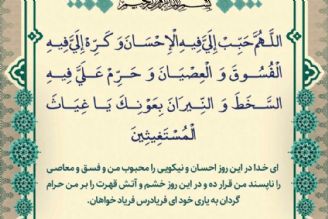 اَللّهُمَّ حَبِّبْ اِلَیَّ فیهِ الْاِحْسانَ وَ کَرِّهْ اِلَیَّ فیهِ
الْفُسُوقَ وَ الْعِصْیانَ وَ حَرِّمْ عَلَیَّ فیهِ
السَّخَطَ وَ النّیرانَ بِعَوْنِکَ یا غِیاثَ
الْمُسْتَغیثینَ
ای خدا در این روز احسان و نیکویی را محبوب من و فسق و معاصی
را ناپسند من قرار ده و در این روز خشم و آتش قهرت را بر من حرام
گردان به یاری خود ای فریادرس فریاد خواهان.